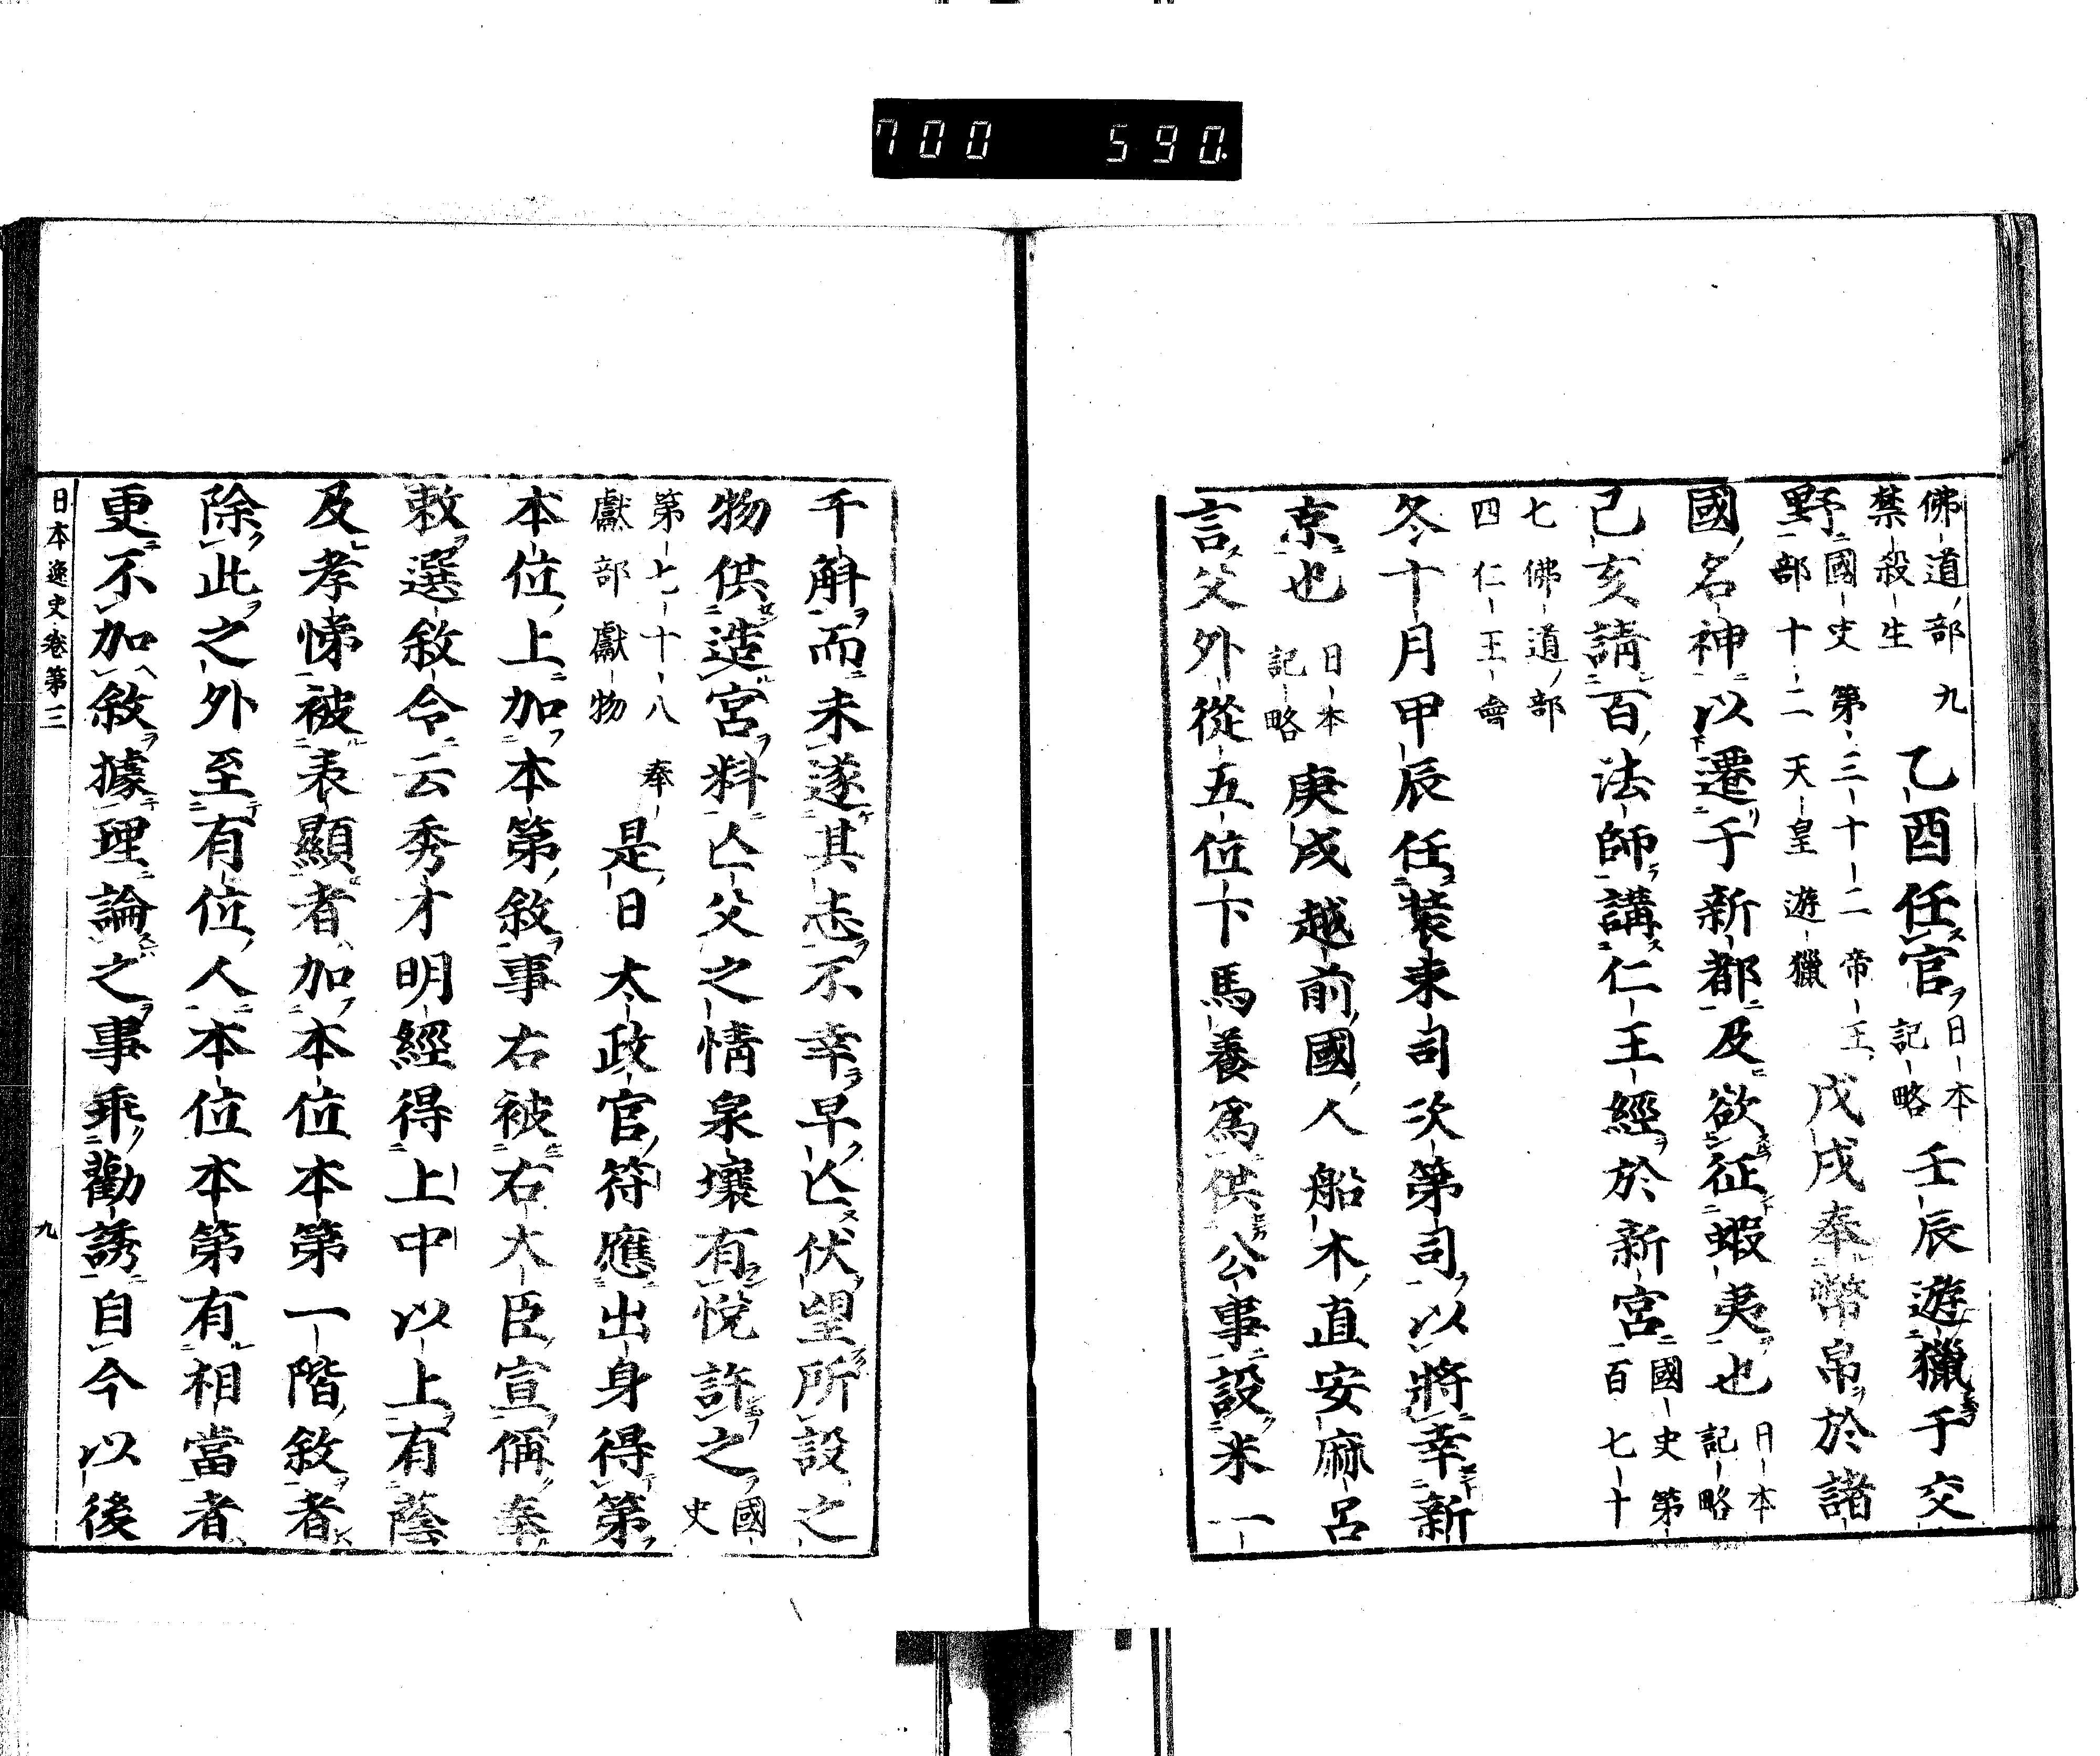 佛道部九禁殺生乙酉任官日本記略壬辰遊獵于交
野國史第三十二帝王部十二天皇遊獵戊戌奉幣帛於諸
國名神以遷于新都及欲征蝦夷也日本記略
己亥請百法師講仁王經於新宮國史第百七十
七佛道部四仁王會
冬十月甲辰任裝束司次第司以將幸新
京也日本記略庚戌越前國人船木直安麻呂
言父外從五位下馬養爲供公事設米一
千斛而未遂其志不幸早亾伏望所設之
物供造宮料亾父之情泉壤有悅許之國史
第七十八奉獻部獻物是日太政官符應出身得第
本位上加本第敘事右被右大臣宣偁奉
敕選敘令云秀才明經得上中以上有蔭
及孝悌被表顯者加本位本第一階敘者
除此之外至有位人本位本第有相當者
更不加敘據理論之事乖勸誘自今以後
日本逸史卷第三 九
700 590